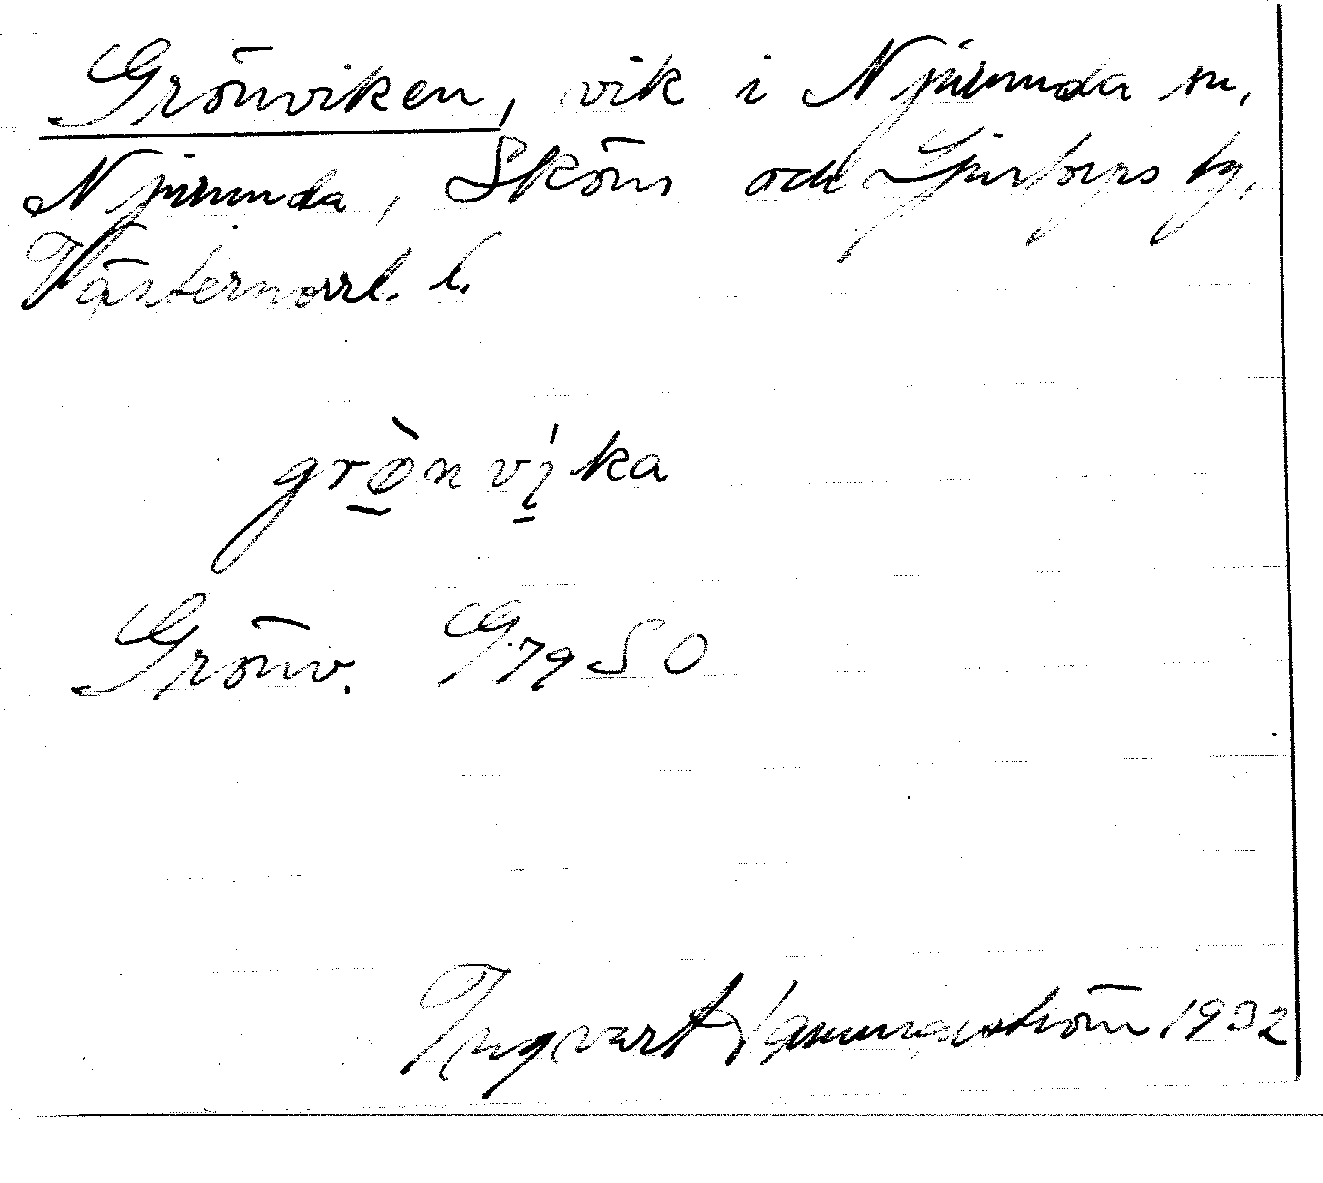 Grönviken, vik i Njurunda sn,
Njurunda, Sköns och Ljustorps tg,
Västernorrl. l.
grø̀nvı́ka
Grönv. G 79 SO
Ingvart Hammarström 1932